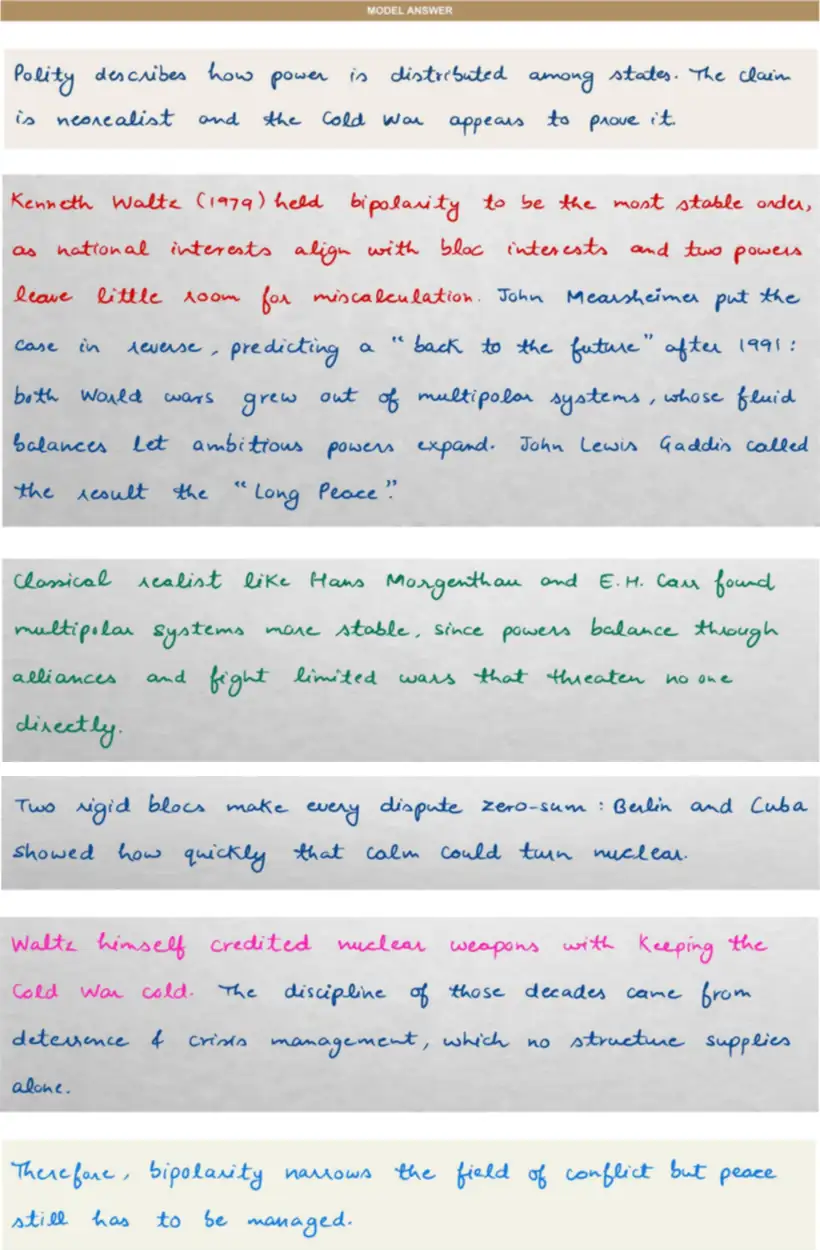 MODEL ANSWER
Polity describes how power is distributed among states. The claim
is neorealist and the Cold War appears to prove it.
Kenneth Waltz (1979) held bipolarity to be the most stable order,
as national interests align with bloc interests and two powers
leave little room for miscalculation. John Mearsheimer put the
case in reverse, predicting a "back to the future" after 1991:
both World wars grew out of multipolar systems, whose fluid
balances let ambitious powers expand. John Lewis Gaddis called
the result the "Long Peace".
Classical realist like Hans Morgenthau and E.H. Carr found
multipolar systems more stable, since powers balance through
alliances and fight limited wars that threaten no one
directly.
Two rigid blocs make every dispute zero-sum: Berlin and Cuba
showed how quickly that calm could turn nuclear.
Waltz himself credited nuclear weapons with keeping the
Cold War cold. The discipline of those decades came from
deterrence & crisis management, which no structure supplies
alone.
Therefore, bipolarity narrows the field of conflict but peace
still has to be managed.